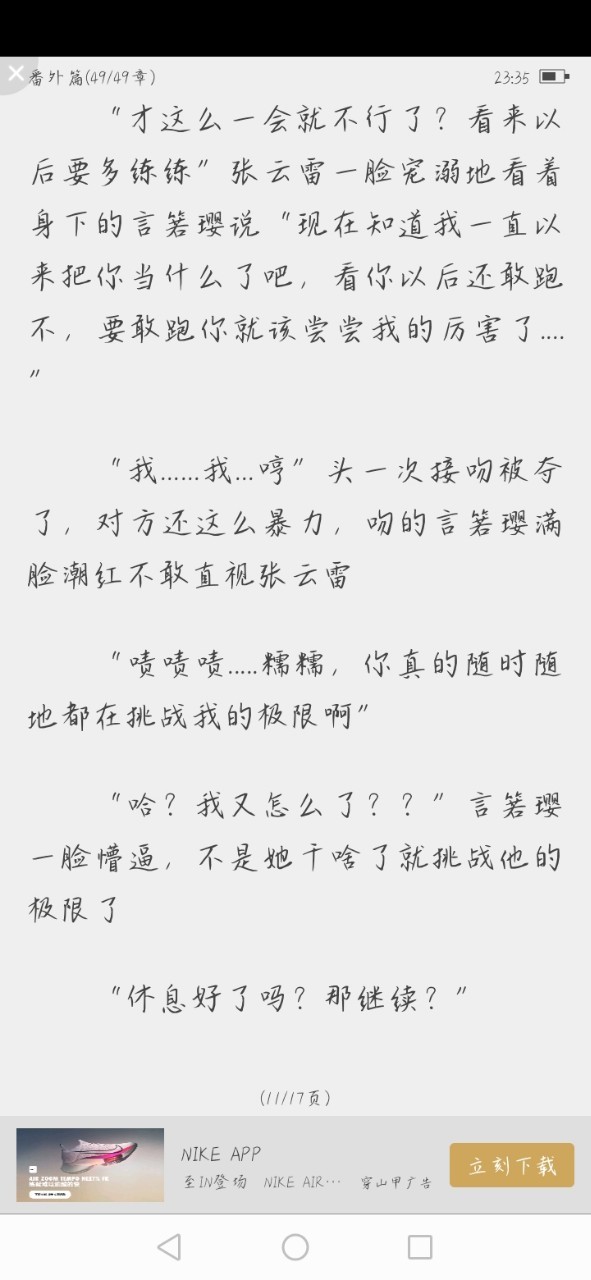 番外篇(49/49章)
23:35
“才这么一会就不行了？看来以
后要多练练”张云雷一脸宠溺地看着
身下的言箬璎说“现在知道我一直以
来把你当什么了吧，看你以后还敢跑
不，要敢跑你就该尝尝我的厉害了....
”
“我......我...哼”头一次接吻被夺
了，对方还这么暴力，吻的言箬璎满
脸潮红不敢直视张云雷
“啧啧啧.....糯糯，你真的随时随
地都在挑战我的极限啊”
“哈？我又怎么了？？”言箬璎
一脸懵逼，不是她干啥了就挑战他的
极限了
“休息好了吗？那继续？”
(11/17页)
NIKE APP
至IN登场 NIKE AIR… 穿山甲广告
立刻下载